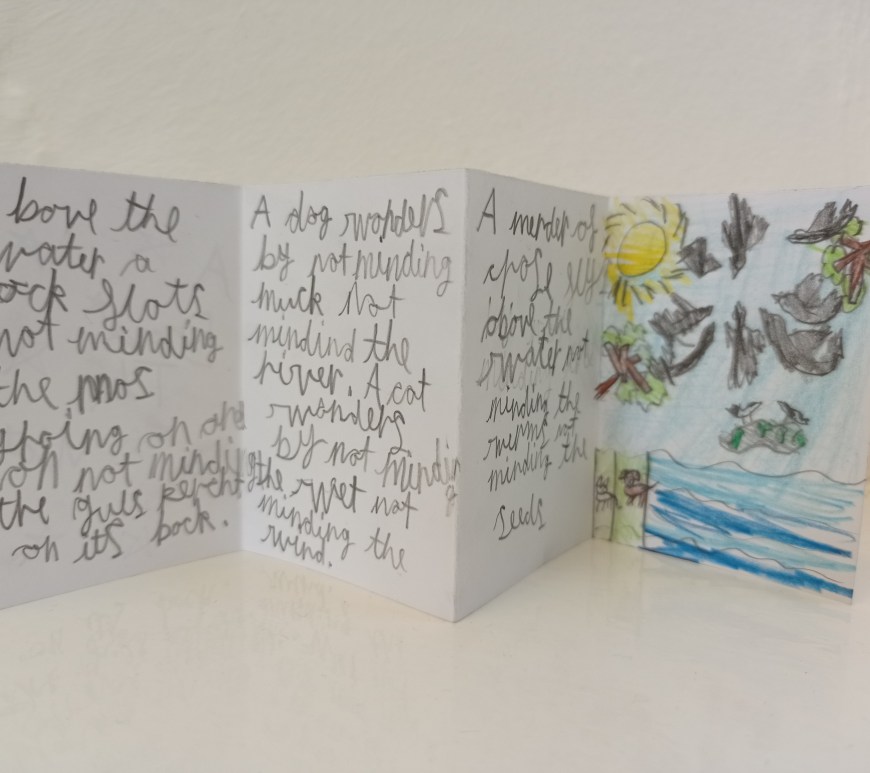 bove the
water a
ock flots
not minding
the mos
groing on and
on not minding
the guls percht
on its back.
A dog wonders
by not minding
muck not
mindind the
river. A cat
wonders
by not minding
the wet not
minding the
wind.
A merder of
crose
above the
water not
minding the
werms not
minding the
seeds